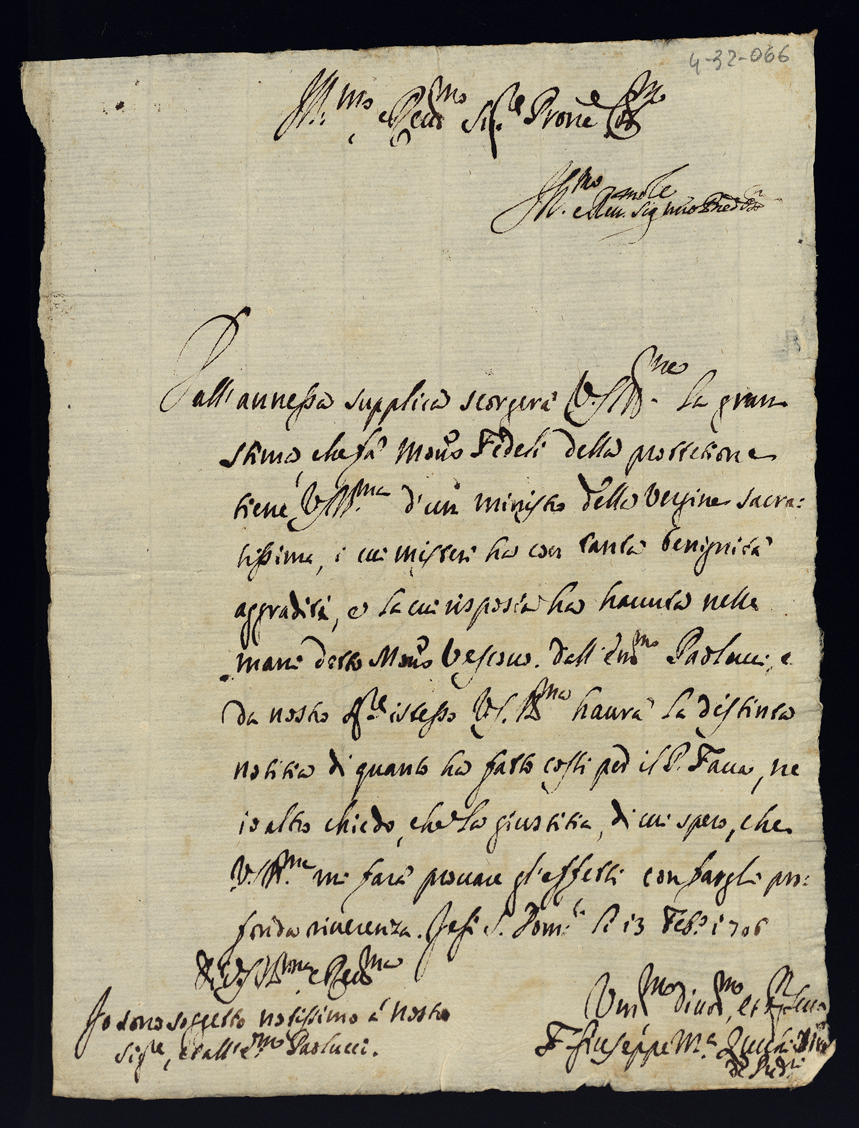 4-32-066
Ill.mo e Rev.mo Sig.re Prone Col.mo
Ill.mo e Rev.
Dall'annessa supplica scorgerà V.S.Ill.ma la gran
stima, che fà Mons.r Fedeli della prottetione
tiene V.S.Ill.ma d'un ministro della Vergine sacra:
tissima, i cui misteri ha con tanta benignità
aggraditi, e la cui risposta ha havuta nelle
mani detto Mons.r Vescovo. Dall'Em.mo Paolucci, e
da nostro Sig.re istesso V.S.Ill.ma haurà la distinta
notitia di quanto ha fatto costì per il P. Faua, ne
io altro chiedo, che la giustitia, di cui spero, che
V.S.Ill.ma mi farà prouare gl'effetti con fargli pro:
fonda riuerenza. Jesi S. Dom.co li 13 Feb.o 1706
Di V.S.Ill.ma e Rev.ma
Io sono soggetto notissimo à nostro
Sig.re, et all'E.mo Paolucci.
Um.mo diuo.mo, et
F. Giuseppe M.a
de Pred.ri